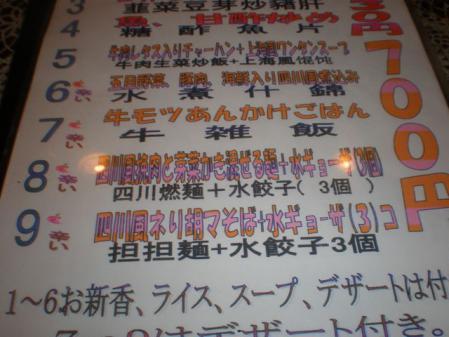 3 韮菜豆芽炒豬肝
0円
魚、甘酢炒め
4 糖醋魚片
5 牛肉レタス入りチャーハン+上海風ワンタンスープ
牛肉生菜炒飯+上海風馄饨
700円
6 辛い 五目野菜 豚肉 海鮮入り四川風煮込み
水煮什錦
7 辛い 牛モツあんかけごはん
牛雑飯
8 辛い 四川風焼肉と芽菜かき混ぜる麺+水ギョーザ(3個)
四川燃麺+水餃子(3個)
9 辛い 四川風ネリ胡マそば+水ギョーザ(3)コ
担担麺+水餃子3個
1~6お新香、ライス、スープ、デザートは付
はデザート付き。